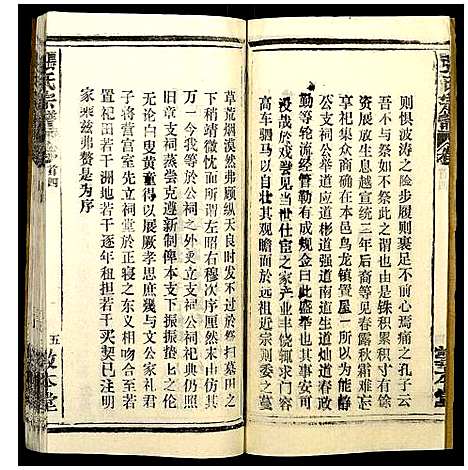 張氏宗譜
卷首四
則恨波涛之险步履则裹足不前心焉痛之孔子云
吾不与祭如不祭此之谓也由是铢积累寸存有余
资展放生息越宣统三年后裔等见春露秋霜难忘
享祀集众商确在本邑乌龙镇置屋一所以奉委
公支祠公举灿道应道彬道强道南道生道灿道春政
勤等轮流经管勒有成规金曰此盛举也何其事安可
没哉於戏尝见当世仕宦之家产业丰饶辄求门容
高车驷马以壮其观瞻而于远祖近宗则委之蔓
草荒烟漠然弗顾纵天良时发不过于祭扫墓田之
下稍靖微忱而所谓左昭右穆次序厘然
万一今我等于公祠之外更为支祠祀典仍照
旧章支祠蒸尝克遵新制俾本支下振振蛰蛰之伦
无论白叟黄童得以展厥孝思庶几与文公家礼君
子将营宫室先立祠堂于正寝之东大义吻合至于
置祀田若干基湖地若干逐年租担若干买契已注明
家乘兹弗赘是为序
張氏宗譜
卷首四
五
敦本堂